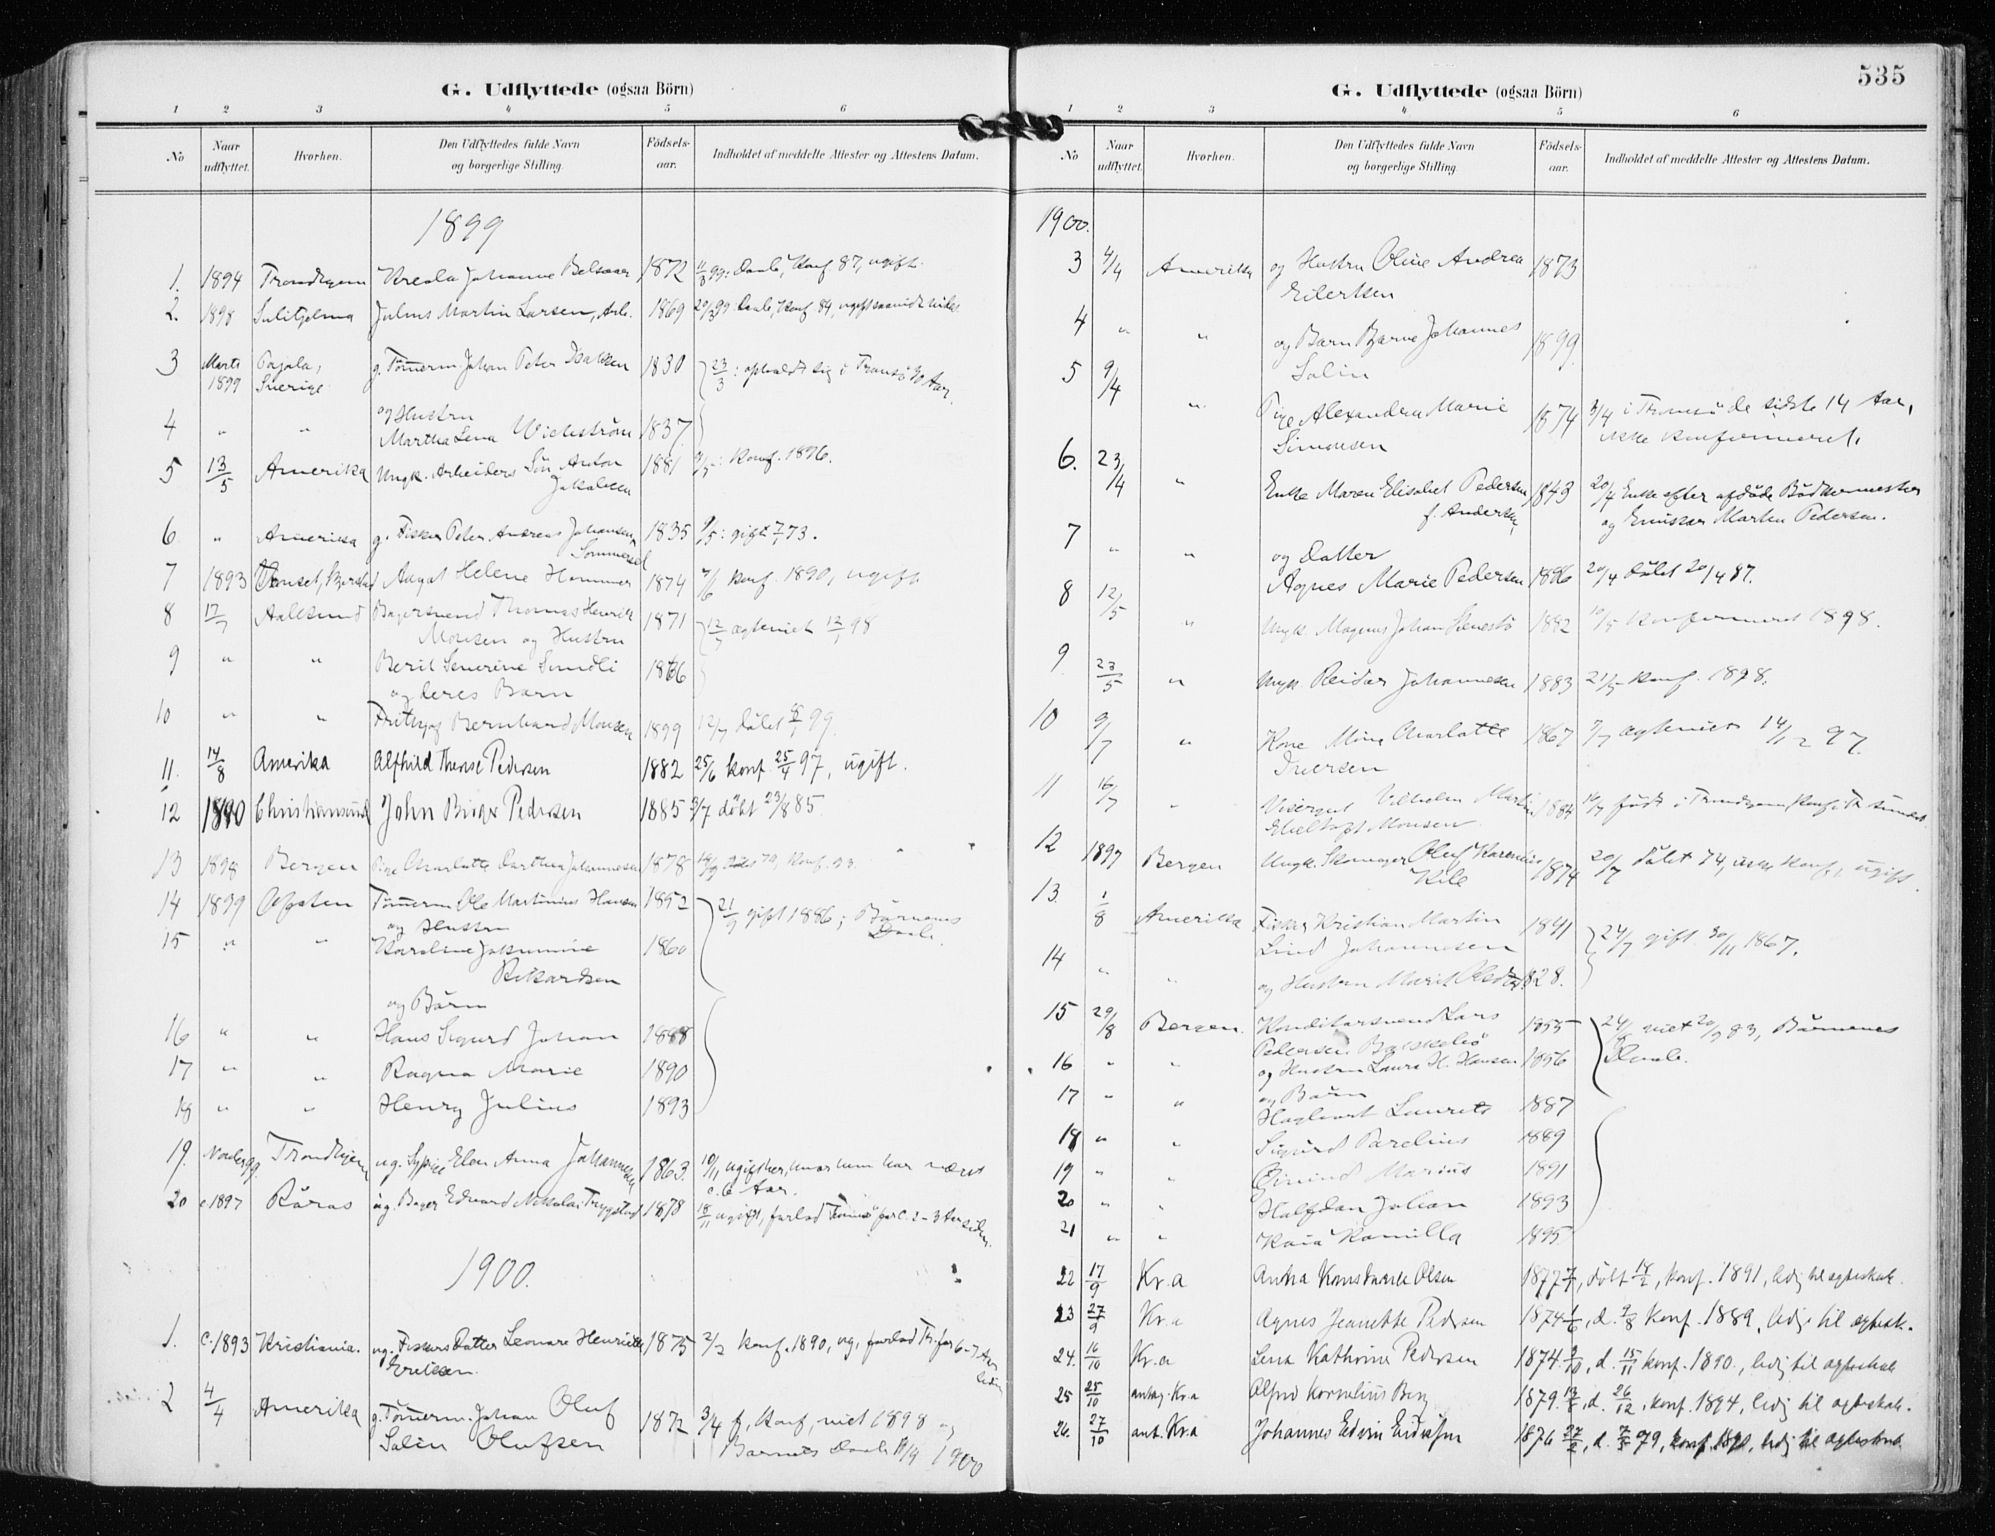 535
G. Udflyttede (ogsaa Börn)
1 2 3 4 5 6
No Naar udflyttet. Hvorhen. Den Udflyttedes fulde Navn og borgerlige Stilling. Födsels-aar. Indholdet af meddelte Attester og Attestens Datum.
1899
1. 1894 Trondhjem Johanne 1872 11/3 99: Daab, Konf 87, ugift.
2. 1898 Sulitjelma Julius Martin Larsen, Arb. 1869 20/3 99: Daab, Konf. 84, ugift
3 Marts 1899 Pajala, Sverige g. Tømerm. Johan Peter Isaksen 1830 23/3: opholdt sig i Tromsö Aar.
4 " " og Hustru
Martha Lena Wickström 1837
5 13/5 Amerika Ungk. Arbeiders Sön Anton Jakobsen 1881 konf. 1896.
6 " Amerika g. Fisker Peter Andreas Johansen Sommersel 1835 9/5: gift 73.
7 1893 Aagot Helene Hammer 1874 7/6 konf. 1890, ugift
8 17/7 Aalesund Bagersvend Thomas Henrik 1871 12/7 ægteviet 98
Monsen og Hustru
9 " " Berit Severine Sundli 1866
og deres Barn
10 " " Fritjog Bernhard Monsen 1899 12/7 döbt 99.
11. 14/8 Amerika Alfhild Therese Pedersen 1882 25/6 konf. 25/4 97, ugift.
12 1890 Christiansund John Birger Pedersen 1885 3/7 döbt 23/8 85.
13 1898 Bergen Pige Charlotte Johannesen 1878 konf. 93
14 1899 Ofoten Tømerm. Ole Martinius Hansen 1852 21/9 gift 1886; Börnenes Daab.
og Hustru
15 " " Karoline Jakumine 1860
Rikardsen
og Börn
16 " " Hans Sigurd Johan 1888
17 " " Ragna Marie 1890
18 " " Henry Julius 1893
19. Novbr 99. Trondhjem ug. Sypige Elen Anna Johannesen 1863. 10/11 ugift her, hvor hun har været
c. 6 Aar.
20 c. 1897 Röros ug. Bager Edvard Nikolai Trygstad 1878 18/11 ugift, forlod Tromsö for c. 2-3 Aar siden.
1900.
1. c. 1893 Kristiania. ug. Fiskers Datter Leonore Henrikke 1875 2/2 konf. 1890, ug., forlod Tr. for 6-7 Aar siden
Eriksen
2 4/4 Amerika g. Tømerm. Johan Oluf 1872 3/4 f, konf, viet 1898 og
Salin Olufsen Barnets Daab 1900
G. Udflyttede (ogsaa Börn)
1 2 3 4 5 6
No Naar udflyttet. Hvorhen. Den Udflyttedes fulde Navn og borgerlige Stilling. Födsels-aar. Indholdet af meddelte Attester og Attestens Datum.
1900.
3 4/4 Amerika og Hustru Oline Andrea 1873
Eilertsen
4 " " og Barn Bjarne Johannes 1899.
Salin
5 9/4 " Pige Alexandra Marie 1874 3/4 i Tromsö de sidste 14 Aar,
Simonsen ikke konfirmeret.
6. 23/4 " Enke Maren Elisabet Pedersen 1843 20/4 Enke efter afdöde Bödkermester
f. Andersen og Emissær Morten Pedersen.
7 " " og Datter
Agnes Marie Pedersen 1886 20/4 döbt 20/4 87.
8 12/5 " Ungk. Magnus Johan 1882 10/5 konfirmeret 1898.
9 23/5 " Ungk. Reidar Johannesen 1883 21/5 konf. 1898.
10 9/7 " Kone Mina Charlotte 1867 7/7 ægteviet 14/12 97.
Iversen
11 16/7 " Visergut Vilhelm Martin 16/7 født i Trondhjem,
Monsen
12 1897 Bergen Ungk. Skomager Oluf Karenius 1874 20/7 döbt 74, ikke konf., ugift.
Kile
13. 1/8 Amerika Fisker Kristian Martin 1841 24/7 gift 30/11 1867.
Lind Johannesen
14 " " og Hustru Marit Olsdtr. 1828.
15 29/8 Bergen. Konditorsvend Lars 1855 24/8 viet 20/9 83, Börnenes
Pedersen Daab.
16 " " og Hustru Laura H. Hansen 1856
17 " " og Börn
Hagbart Laurits 1887
18 " " Sigurd Parelius 1889
19 " " Öivind Marius 1891
20 " " Halfdan Johan 1893
21 " " Kaia Kamilla 1895
22 17/9 Kr.a Anna Konstanse Olsen 1877 7/1, döbt 18/2, konf. 1891, ledig til ægtesk.
23 27/9 Kr.a Agnes Jeanette Pedersen 1874 1/6, d. 9/8 konf. 1889, ledig til ægtesk.
24. 16/10 Kr.a Lena Kathrine Pedersen 1874. 9/10, d. 15/11 konf. 1890., ledig til ægteskab
25 25/10 antag. Kr.a Alfred Kornelius Berg 1879. d. 26/12, konf. 1894, ledig til ægteskab.
26. 27/10 ant. Kr.a Johannes Edvin 1876 27/2, d. 79, konf. ledig til ægteskab.